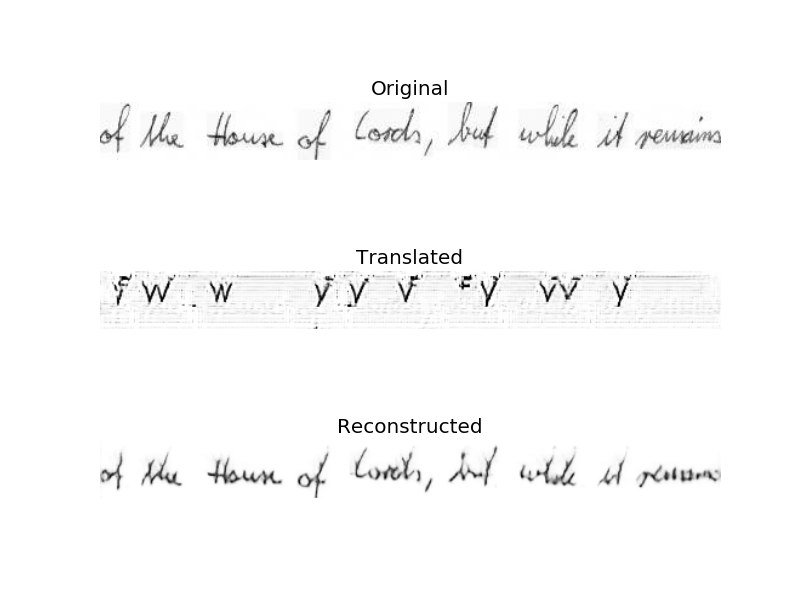 Original
of the House of Lords, but while it remains
Translated
Reconstructed
of the House of Lords, but while it remains